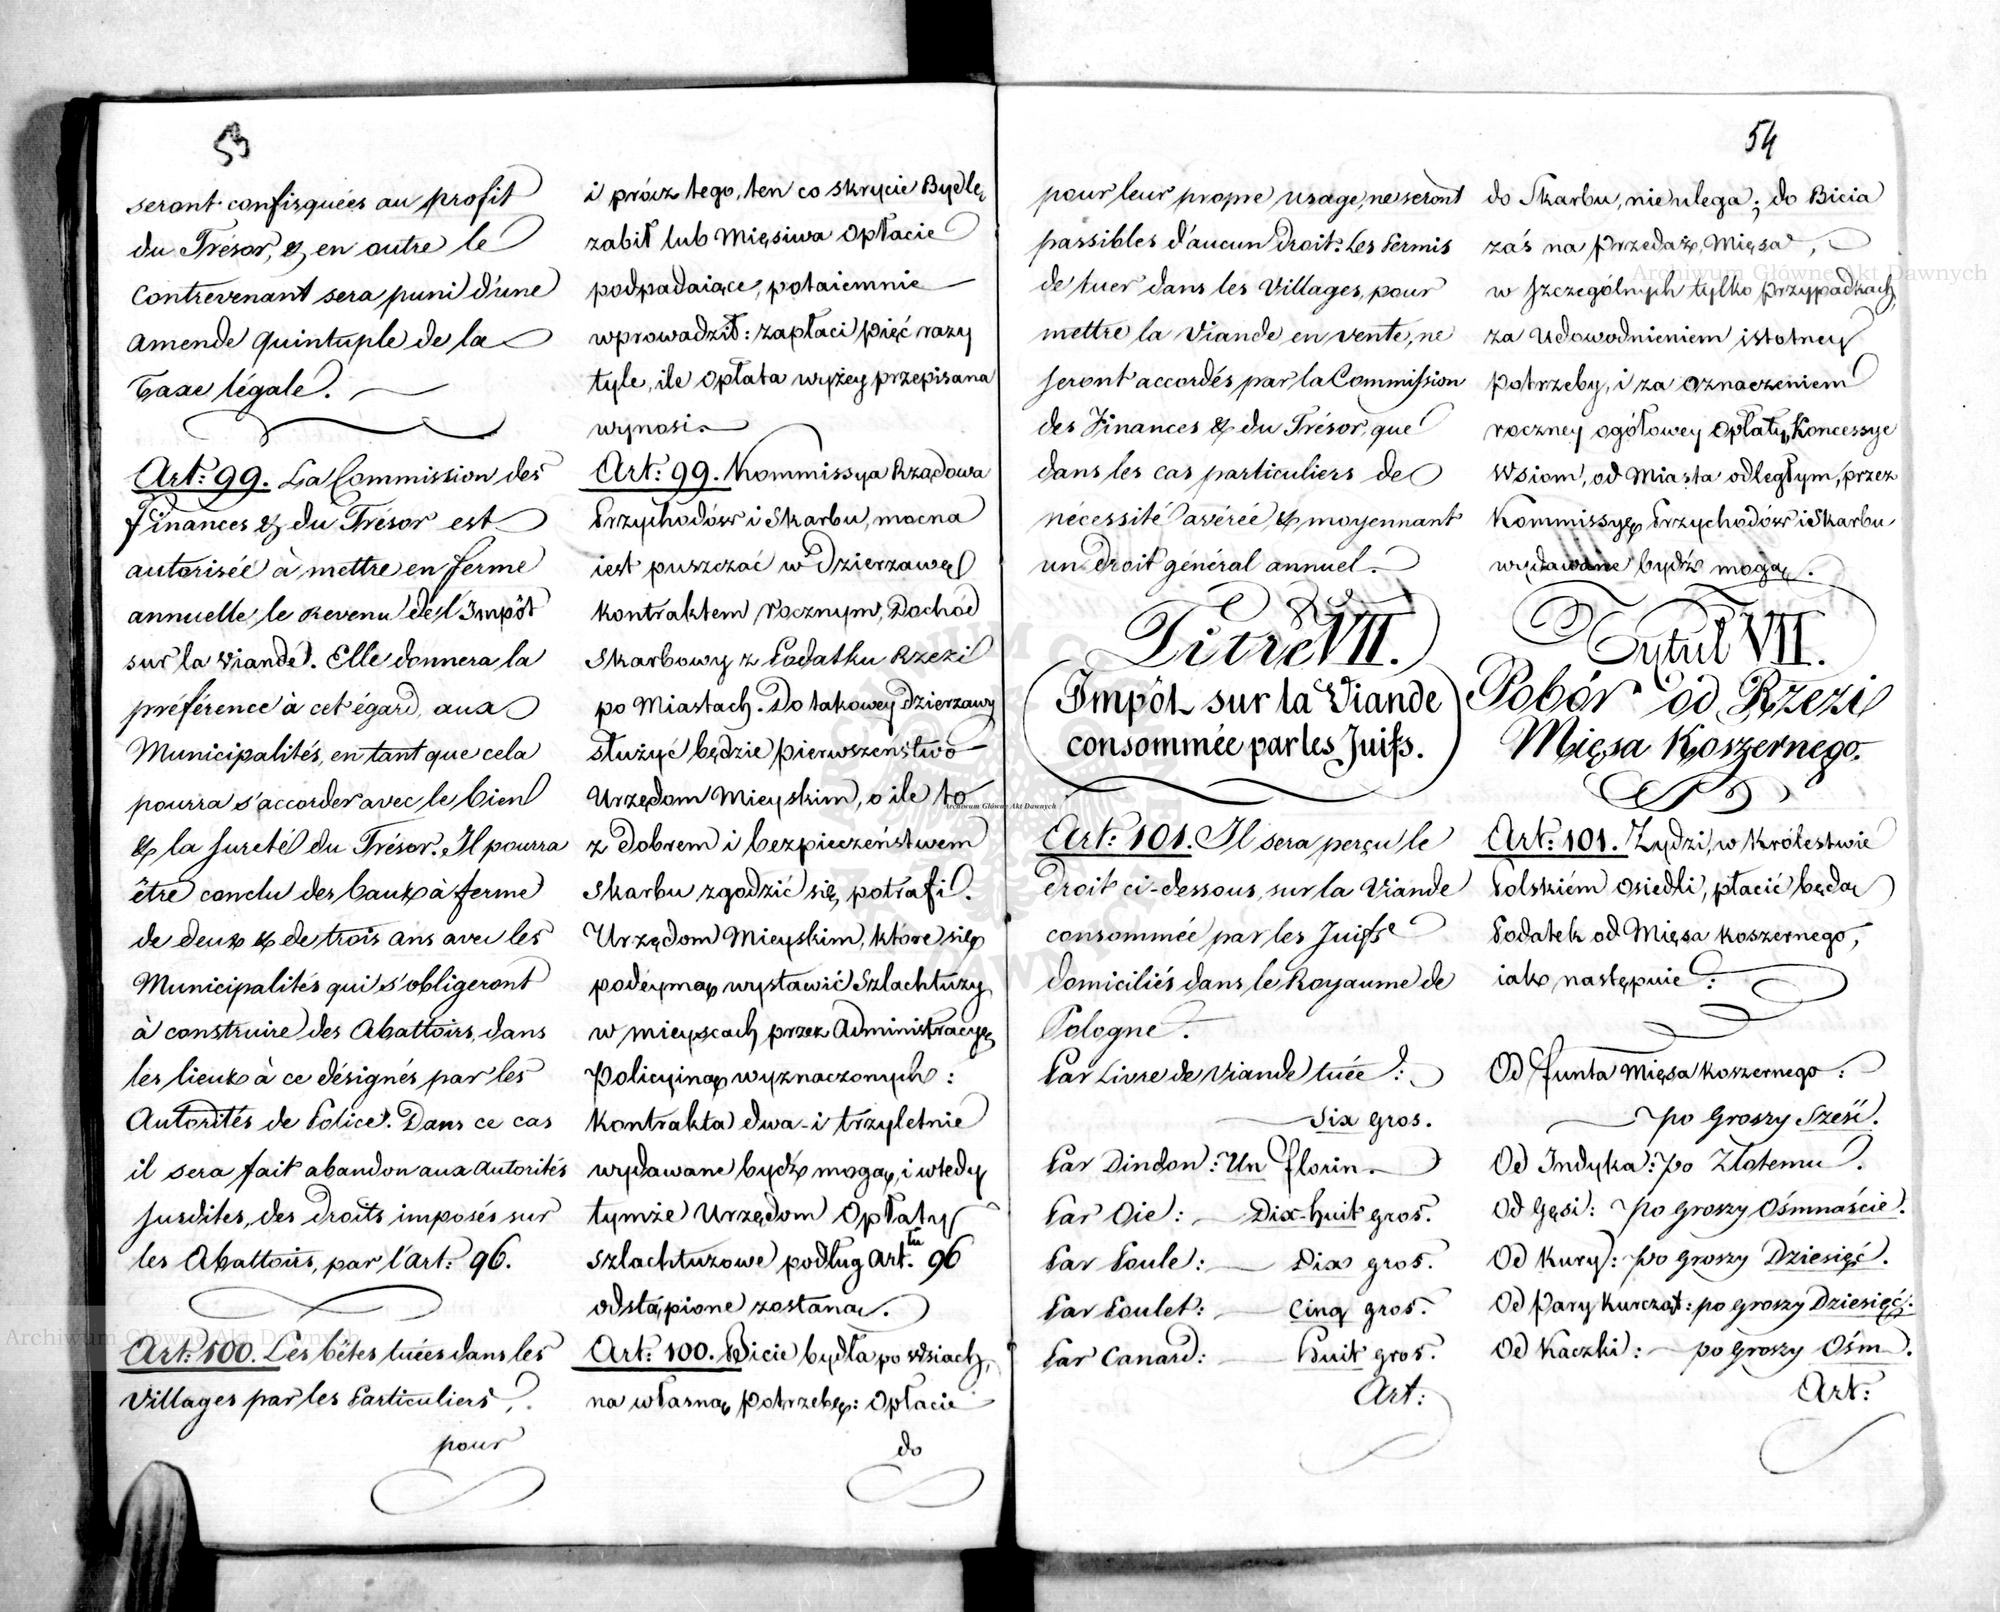 53
seront confisquées au profit
du Trésor, & en outre le
Contrevenant sera puni d'une
amende quintuple de la
Taxe légale.
Art: 99. La Commission des
Finances & du Trésor est
autorisée à mettre en ferme
annuelle le Revenu de l'Impôt
sur la Viande. Elle donnera la
préférence à cet égard, aux
Municipalités, en tant que cela
pourra s'accorder avec le bien
& la sureté du Trésor. Il pourra
être conclu des baux à ferme
de deux & de trois ans avec les
Municipalités qui s'obligeront
à construire des Abattoirs, dans
les lieux à ce désignés par les
Autorités de Police. Dans ce cas
il sera fait abandon aux autorités
susdites, des droits imposés sur
les Abattoirs, par l'art: 96.
Art: 100. Les bêtes tuées dans les
Villages par les Particuliers,
pour
i prócz tego, ten co skrycie Bydlę
zabił lub Mięsiwa Opłacie
podpadaiące, potaiemnie
wprowadził: zapłaci pięć razy
tyle, ile Opłata wyżey przepisana
wynosi.
Art: 99. Kommissya Rządowa
Przychodów i Skarbu, mocna
iest puszczać w Dzierzawę
kontraktem rocznym, Dochód
Skarbowy z Podatku Rzezi
po Miastach. Do takowey dzierzawy
służyć będzie pierwszeństwo
Urzędom Mieyskim, o ile to
z dobrem i bezpieczeństwem
Skarbu zgodzić się potrafi.
Urzędom Mieyskim, które się
podeymą wystawić Szlachtuzy
w mieyscach przez Administracyę
Policyiną wyznaczonych:
kontrakta dwa-i trzyletnie
wydawane bydź mogą, i wtedy
tymże Urzędom Opłaty
szlachtuzowe podług art.tu 96
odstąpione zostaną.
Art: 100. Bicie bydła po wsiach,
na własną potrzebę: Opłacie
do
54
pour leur propre usage, ne seront
passibles d'aucun droit. Les Permis
de tuer dans les Villages, pour
mettre la Viande en vente, ne
seront accordés par la Commission
des Finances & du Trésor, que
dans les cas particuliers de
nécessité avérée, & moyennant
un droit général annuel.
Titre VII.
Impôt sur la Viande
consommée par les Juifs.
Art: 101. Il sera perçu le
droit ci-dessous, sur la Viande
consommée par les Juifs
domiciliés dans le Royaume de
Pologne.
Par Livre de Viande tuée:
Six gros.
Par Dindon: Un florin.
Par Oie: Dix-huit gros.
Par Poule: Dix gros.
Par Poulet: Cinq gros.
Par Canard: Huit gros.
Art:
do Skarbu, nie ulega; do Bicia
zaś na przedaż, Mięsa,
w szczególnych tylko przypadkach,
za udowodnieniem istotney
potrzeby, i za oznaczeniem
roczney ogółowey Opłaty, Koncessye
Wsiom, od Miasta odległym, przez
Kommissyę Przychodów i Skarbu
wydawane bydź mogą.
Tytuł VII.
Pobór od Rzezi
Mięsa Koszernego.
Art: 101. Żydzi, w Królestwie
Polskiém osiedli, płacić będą
Podatek od Mięsa koszernego,
iak następuie:
Od funta Mięsa koszernego:
po Groszy Sześć.
Od Indyka: po Złotemu.
Od Gęsi: po groszy Ośmnaście.
Od Kury: po Groszy Dziesięć.
Od Pary Kurcząt: po groszy Dziesięć.
Od Kaczki: po groszy Ośm.
Art:
Archiwum Główne Akt Dawnych
Archiwum Główne Akt Dawnych
Archiwum Główne Akt Dawnych